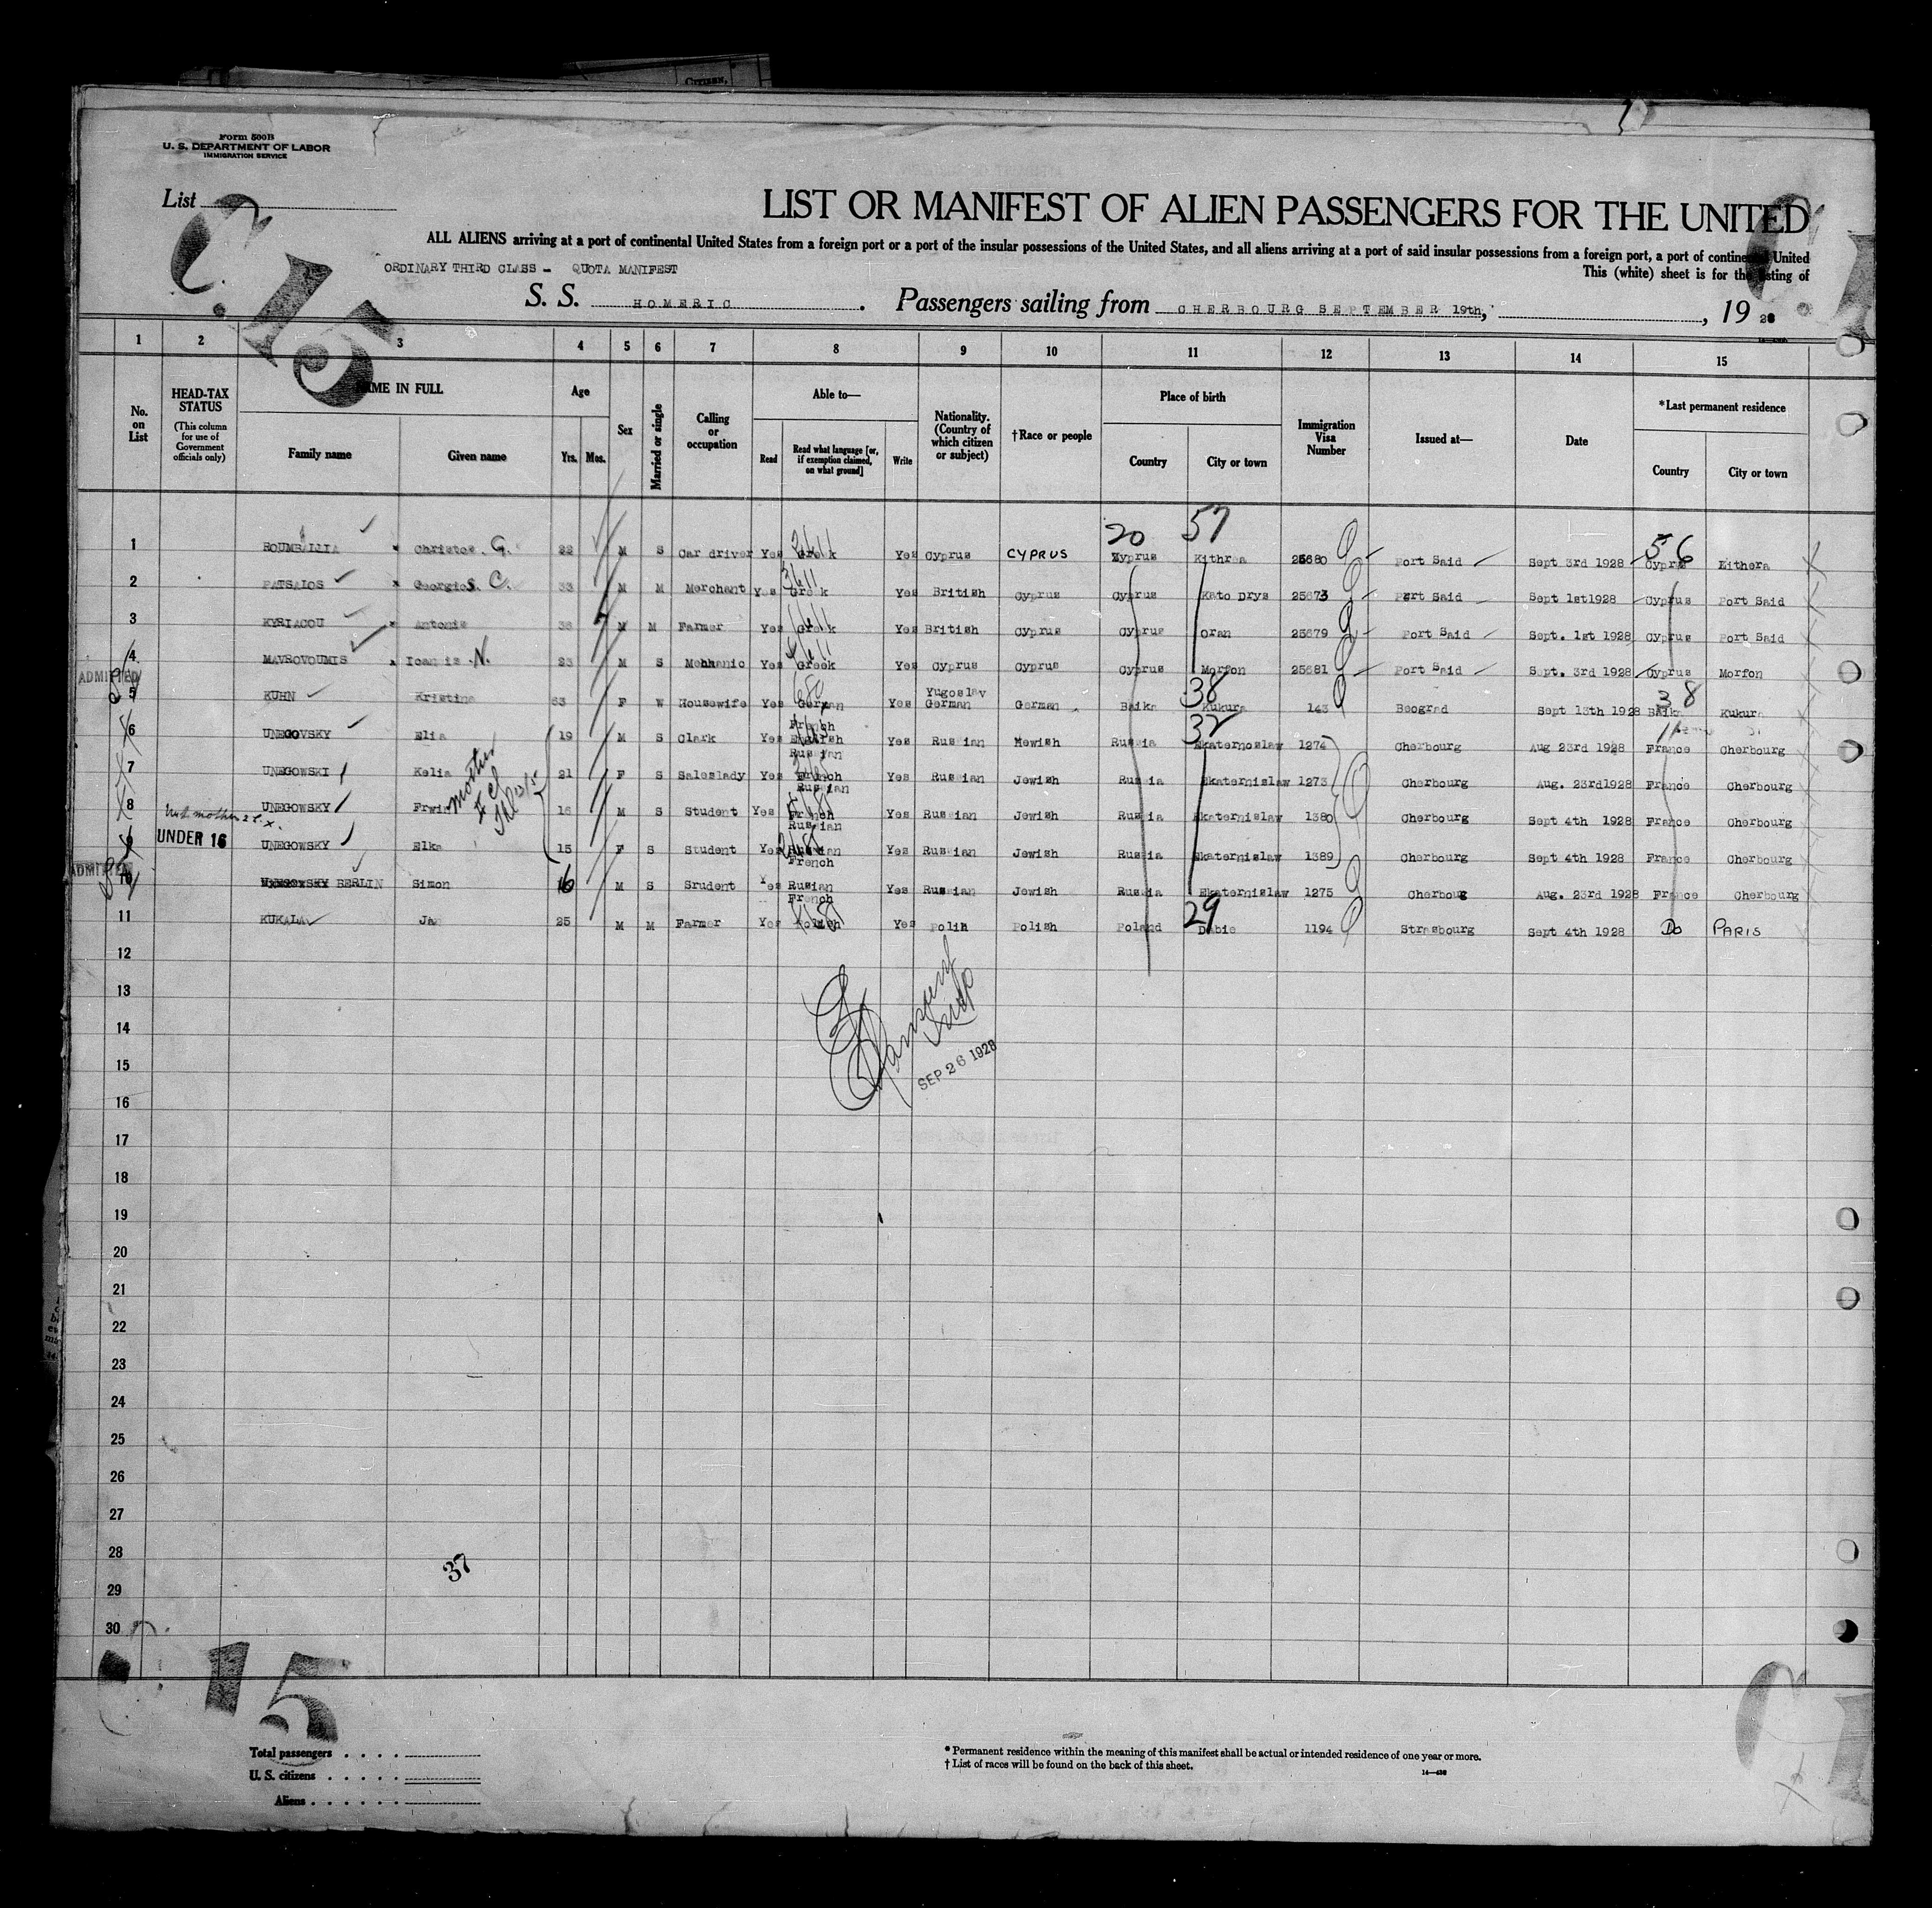 CITIZEN,
Form 500B
U. S. DEPARTMENT OF LABOR
IMMIGRATION SERVICE
List
C. 15
LIST OR MANIFEST OF ALIEN PASSENGERS FOR THE UNITED
ALL ALIENS arriving at a port of continental United States from a foreign port or a port of the insular possessions of the United States, and all aliens arriving at a port of said insular possessions from a foreign port, a port of continental United
This (white) sheet is for the listing of
ORDINARY THIRD CLASS - QUOTA MANIFEST
S. S. HOMERIC. Passengers sailing from CHERBOURG SEPTEMBER 19th, , 19 28
1 2 3 4 5 6 7 8 9 10 11 12 13 14 15
No. on List
HEAD-TAX STATUS (This column for use of Government officials only)
NAME IN FULL Family name Given name
Age Yrs. Mos.
Sex
Married or single
Calling or occupation
Able to— Read Read what language [or, if exemption claimed, on what ground] Write
Nationality. (Country of which citizen or subject)
†Race or people
Place of birth Country City or town
Immigration Visa Number
Issued at—
Date
*Last permanent residence Country City or town
20 57 56
1 Christos. G. 22 M S Car driver Yes Greek Yes Cyprus CYPRUS Kyprus Kithrea 25680 Port Said Sept 3rd 1928 Cyprus Kithera
2 PATSALOS Georgios. C. 33 M M Merchant Yes Greek Yes British Cyprus Cyprus Kato Drys 25673 Port Said Sept 1st1928 Cyprus Port Said
3 KYRIACOU Antonis 36 M M Farmer Yes Greek Yes British Cyprus Cyprus Oran 25679 Port Said Sept. 1st 1928 Cyprus Port Said
4 MAVROVOUMIS Ioannis .N. 23 M S Mehhanic Yes Greek Yes Cyprus Cyprus Cyprus Morfon 25681 Port Said Sept. 3rd 1928 Cyprus Morfon
ADMITTED
38 38
5 KUHN Kristina 63 F W Housewife Yes German Yes Yugoslav German German Baika Kukura 143 Beograd Sept 13th 1928 Baika Kukura
32
6 UNEGOVSKY Elia 19 M S Clark Yes French English Russian Yes Russian Hewish Russia Ekaternoslaw 1274 Cherbourg Aug 23rd 1928 France Cherbourg
7 UNEGOWSKI Kelia 21 F S Saleslady Yes French Russian Yes Russian Jewish Russia Ekaternislaw 1273 Cherbourg Aug. 23rd1928 France Cherbourg
mother
8 UNEGOWSKY 16 M S Student Yes French Russian Yes Russian Jewish Russia Ekaternislaw 1380 Cherbourg Sept 4th 1928 France Cherbourg
9 UNDER 16 UNEGOWSKY Elka 15 F S Student Yes Russian French Yes Russian Jewish Russia Ekaternislaw 1389 Cherbourg Sept 4th 1928 France Cherbourg
ADMITTED
10 UNEGOWSKY BERLIN Simon 16 M S Srudent Yes Rusian French Yes Russian Jewish Russia Ekaternislaw 1275 Cherboug Aug. 23rd 1928 France Cherbourg
29
11 KUKALA Jan 25 M M Farmer Yes Polish Yes Polih Polish Poland Dabie 1194 Strasbourg Sept 4th 1928 Do PARIS
12
13
14
SEP 26 1928
15
16
17
18
19
20
21
22
23
24
25
26
27
28
37
29
30
15
Total passengers
U. S. citizens
Aliens
* Permanent residence within the meaning of this manifest shall be actual or intended residence of one year or more.
† List of races will be found on the back of this sheet.